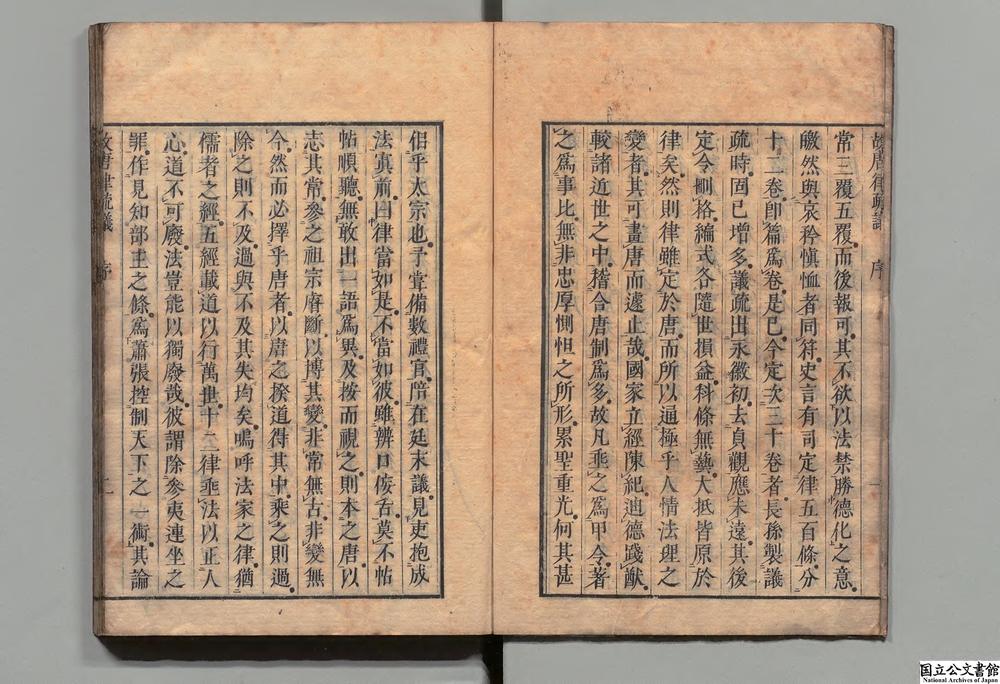 常三覆五覆而後報可其不欲以法禁勝德化之意
皦然與哀矜愼恤者同符史言有司定律五百條分
十二卷卽篇爲卷是已今定次三十卷者長孫製議
疏時固已增多議疏出永徽初去貞觀應未遠其後
定令刪格編式各隨世損益科條無藝大抵皆原於
律矣然則律雖定於唐而所以通極乎人情法理之
變者其可畫唐而遽止哉國家立經陳紀迪德踐猷
較諸近世之中稽合唐制爲多故凡垂之爲甲令著
之爲事比無非忠厚惻怛之所形累聖重光何其甚
故唐律疏議 序 一
侶乎太宗也予嘗備數禮官陪在廷末議見吏抱成
法寘前曰律當如是不當如彼雖辨口佞舌莫不帖
帖順聽無敢出一語爲異及按而視之則本之唐以
志其常參之祖宗睿斷以博其變非常無古非變無
今然而必擇乎唐者以唐之揆道得其中乘之則過
除之則不及過與不及其失均矣嗚呼法家之律猶
儒者之經五經載道以行萬世十二律垂法以正人
心道不可廢法豈能以獨廢哉彼謂除參夷連坐之
罪作見知部主之條爲蕭張控制天下之一術其論
故唐律疏議 序 二
国立公文書館
National Archives of Japan